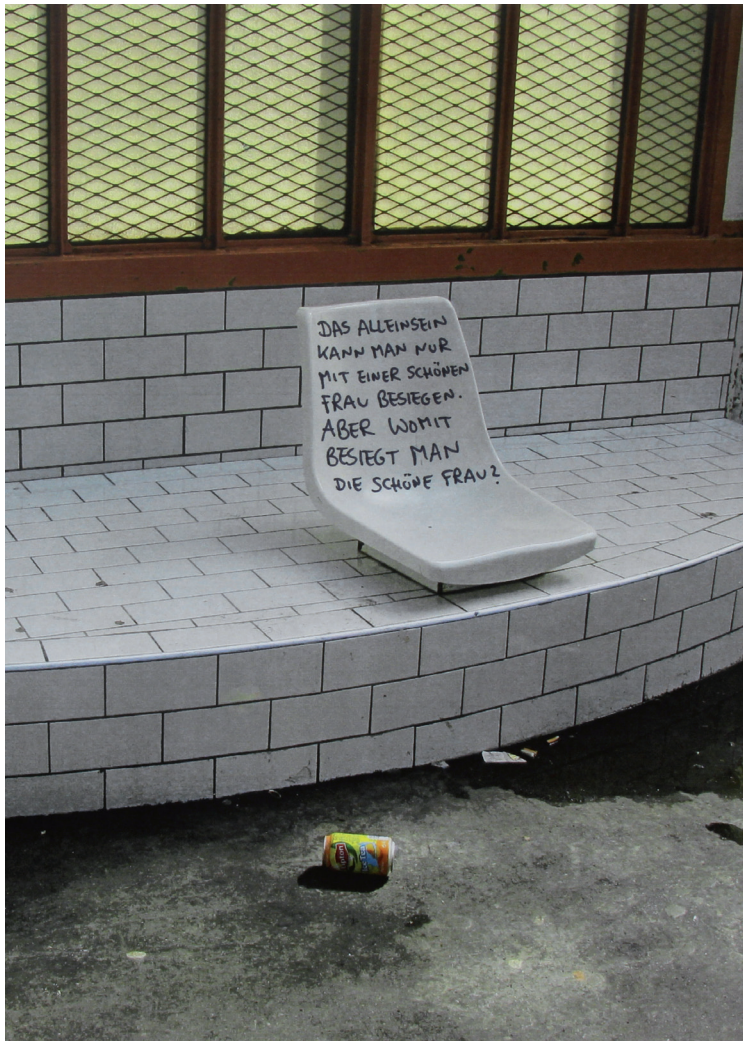 DAS ALLEINSEIN
KANN MAN NUR
MIT EINER SCHÖNEN
FRAU BESIEGEN.
ABER WOMIT
BESIEGT MAN
DIE SCHÖNE FRAU?
Lipton